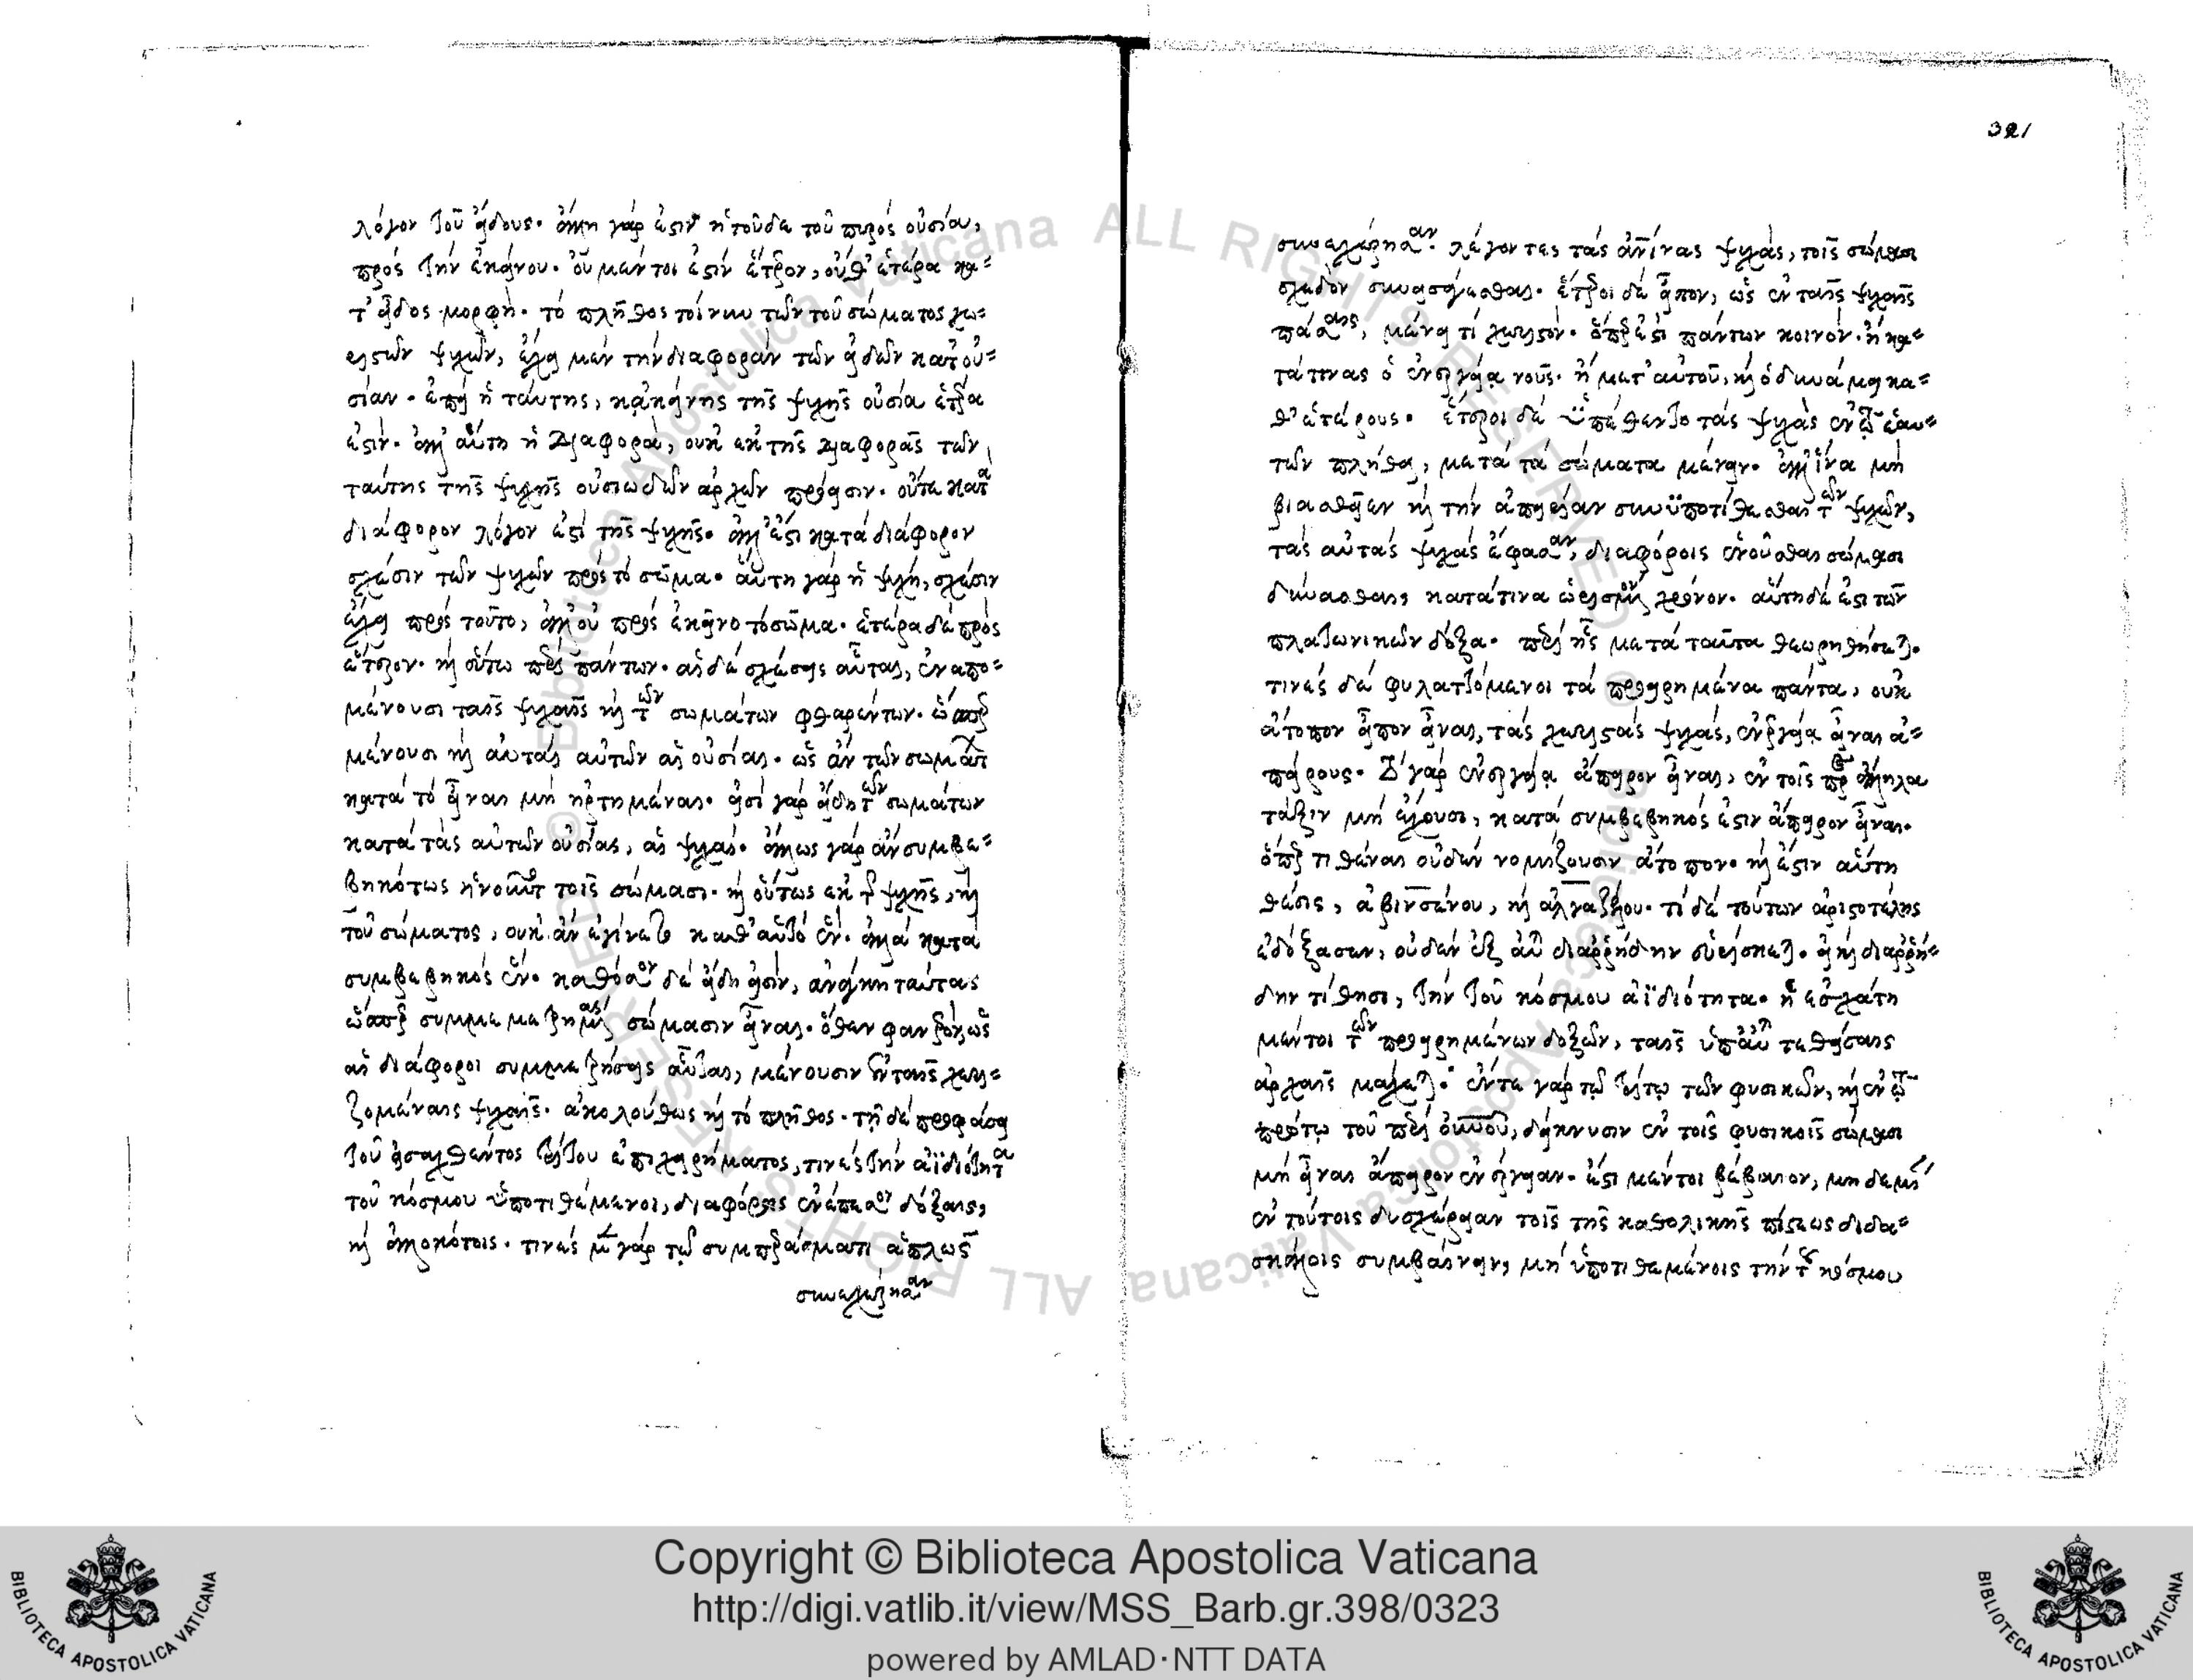 λόγον τοῦ εἴδους· ἄλλη γάρ ἐστιν ἡ τοῦδε τοῦ πυρός οὐσία,
πρός τὴν ἐκείνου. οὐ μέντοι ἐστίν ἕτερον, οὐθ' ἑτέρα κα=
τ' εἶδος μορφή. τό πλῆθος τοίνυν τῶν τοῦ σώματος χω=
ριστῶν ψυχῶν, ἔχει μέν τὴν διαφοράν τῶν εἰδῶν κατ' οὐ=
σίαν. ἐπεί ἡ ταύτης, κἀκείνης τῆς ψυχῆς οὐσία ἑτέρα
ἐστίν. ἀλλ' αὕτη ἡ διαφορά, οὐκ ἐκ τῆς διαφορᾶς τῶν
ταύτης τῆς ψυχῆς οὐσιωδῶν ἀρχῶν πρόεισιν. οὔτε κατὰ
διάφορον λόγον ἐστί τῆς ψυχῆς. ἀλλ' ἐστί κατά διάφορον
σχέσιν τῶν ψυχῶν πρός τό σῶμα. αὕτη γάρ ἡ ψυχή, σχέσιν
ἔχει πρός τοῦτο, ἀλλ' οὐ πρός ἐκεῖνο τό σῶμα. ἑτέρα δέ πρός
ἕτερον. καί οὕτω περί πάντων. αἱ δέ σχέσεις αὗται, ἐναπο=
μένουσι ταῖς ψυχαῖς καί τῶν σωμάτων φθαρέντων. ὥσπερ
μένουσι καί αὐταί αὐτῶν αἱ οὐσίαι. ὡς ἄν τῶν σωμάτων
κατά τό εἶναι μή ἠρτημέναι. εἰσί γάρ εἴδη τῶν σωμάτων
κατά τάς αὐτῶν οὐσίας, αἱ ψυχαί. ἄλλως γάρ ἄν συμβε=
βηκότως ἡνοῦντο τοῖς σώμασι. καί οὕτως ἐκ τῆς ψυχῆς, καί
τοῦ σώματος, οὐκ ἄν ἐγίνετο καθ' αὑτό ἕν. ἀλλά κατά
συμβεβηκός ἕν. καθόσον δέ εἴδη εἰσίν, ἀνάγκη ταύτας
ὥσπερ συμμεμετρημένας σώμασιν εἶναι. ὅθεν φανερόν ὡς
αἱ διάφοροι συμμετρήσεις αὗται, μένουσιν ἐν ταῖς χωρι=
ζομέναις ψυχαῖς. ἀκολούθως καί τό πλῆθος. τῇ δέ προφάσει
τοῦ εἰσαχθέντος τρίτου ἐπιχειρήματος, τινές τὴν ἀϊδιότητα
τοῦ κόσμου ὑποτιθέμενοι, διαφόροις ἐνέπεσον δόξαις,
καί ἀλλοκότοις. τινές μέν γάρ τῷ συμπεράσματι ἁπλῶς
συνεχώρησαν
321
συνεχώρησαν. λέγοντες τάς ἀνθρωπίνας ψυχάς, τοῖς σώμασι
σχεδόν συνφθείρεσθαι. ἕτεροι δέ εἶπον, ὡς ἐν ταῖς ψυχαῖς
πάσαις, μένει τί χωριστόν. ὅπερ ἐστί πάντων κοινόν. ἤ κα=
τά τινας ὁ ἐνεργείᾳ νοῦς. ἤ μετ' αὐτοῦ, καί ὁ δυνάμει κα=
θ' ἑτέρους. ἕτεροι δέ ὑπέθεντο τάς ψυχάς ἐν τῷ ἑαυ=
τῶν πλήθει, μετά τά σώματα μένειν. ἀλλ' ἵνα μή
βιασθεῖεν καί τὴν ἀπειρίαν συνϋποτίθεσθαι τῶν ψυχῶν,
τάς αὐτάς ψυχάς ἔφασαν, διαφόροις ἑνοῦσθαι σώμασι
δύνασθαι, κατά τινα ὡρισμένον χρόνον. αὕτη δέ ἐστι τῶν
πλατωνικῶν δόξα. περί ἧς μετά ταῦτα θεωρηθήσεται.
τινές δέ φυλαττόμενοι τά προειρημένα πάντα, οὐκ
ἄτοπον εἶπον εἶναι, τάς χωριστάς ψυχάς, ἐνεργείᾳ εἶναι ἀ=
πείρους. τό γάρ ἐνεργείᾳ ἄπειρον εἶναι, ἐν τοῖς πρός ἄλληλα
τάξιν μή ἔχουσι, κατά συμβεβηκός ἐστιν ἄπειρον εἶναι.
ὅπερ τιθέναι οὐδέν νομίζουσιν ἄτοπον. καί ἐστιν αὕτη
θέσις, ἀβινσένου, καί ἀλγαζήλου. τί δέ τούτων ἀριστοτέλης
ἐδόξασεν, οὐδέν ἐξ αὐτοῦ διαρρήδην εὑρίσκεται. εἰ καί διαρρή=
δην τίθησι, τὴν τοῦ κόσμου ἀϊδιότητα. ἡ ἐσχάτη
μέντοι τῶν προειρημένων δοξῶν, ταῖς ὑπ' αὐτοῦ τεθείσαις
ἀρχαῖς μάχεται. ἔν τε γάρ τῷ τρίτῳ τῶν φυσικῶν, καί ἐν τῷ
πρώτῳ τοῦ περί οὐρανοῦ, δείκνυσιν ἐν τοῖς φυσικοῖς σώμασι
μή εἶναι ἄπειρον ἐνέργειαν. ἔστι μέντοι βέβαιον, μηδεμίαν
ἐν τούτοις δυσχέρειαν τοῖς τῆς καθολικῆς πίστεως διδα=
σκάλοις συμβαίνειν, μή ὑποτιθεμένοις τὴν τοῦ κόσμου
Copyright © Biblioteca Apostolica Vaticana
http://digi.vatlib.it/view/MSS_Barb.gr.398/0323
powered by AMLAD·NTT DATA